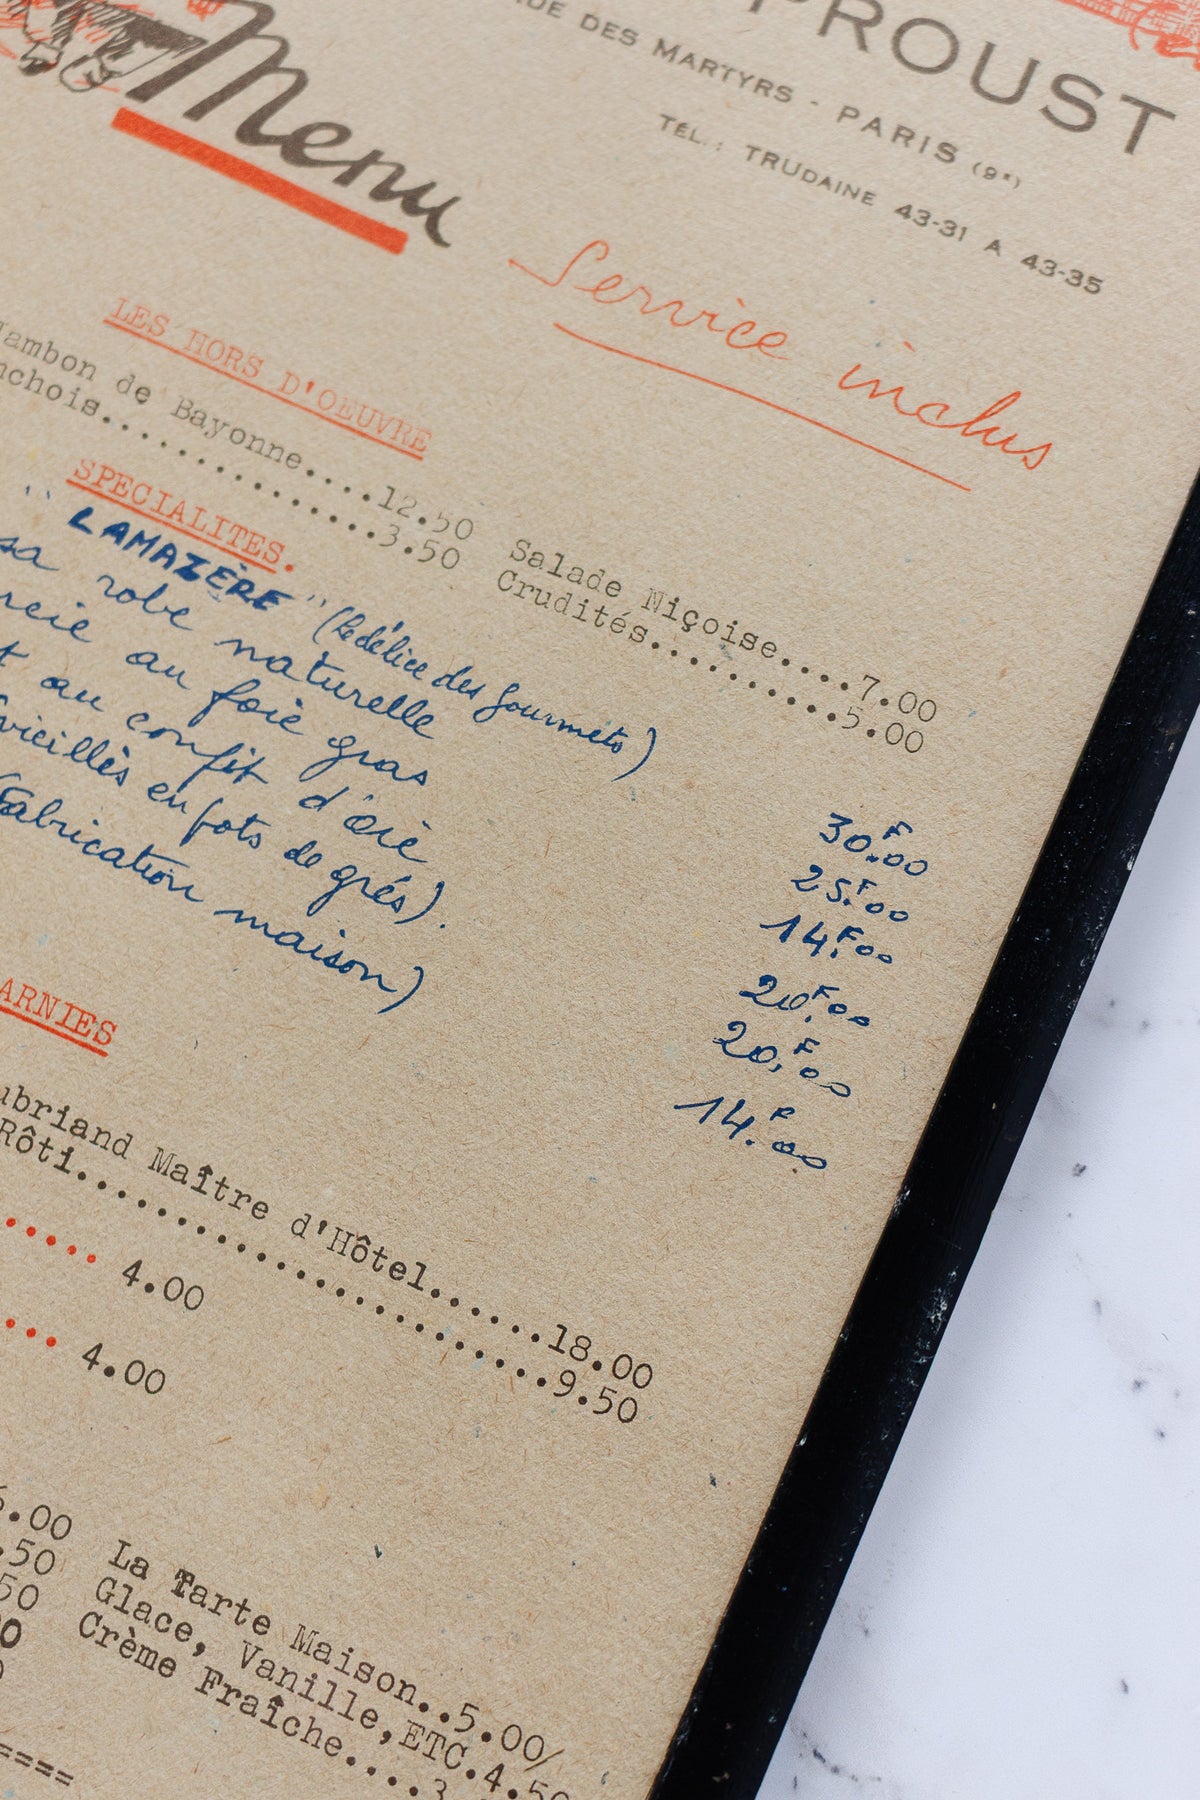 PROUST
RUE DES MARTYRS - PARIS (9e)
TÉL. : TRUDAINE 43-31 A 43-35
Menu
Service inclus
LES HORS D'OEUVRE
Jambon de Bayonne....12.50 Salade Niçoise....7.00
nchois...............3.50 Crudités..........5.00
SPECIALITES.
" LAMAZÈRE " (Le délice des gourmets) 30.F00
sa robe naturelle 25.F00
au foie gras 14.F00
au confit d'oie 20.F00
vieillès en pots de grés). 20.F00
(Fabrication maison) 14.F00
ARNIES
ubriand Maître d'Hôtel......18.00
Rôti........................9.50
..... 4.00
... 4.00
.00 La Tarte Maison..5.00/
.50 Glace, Vanille,ETC.4.50
50 Crème Fraîche....3
====